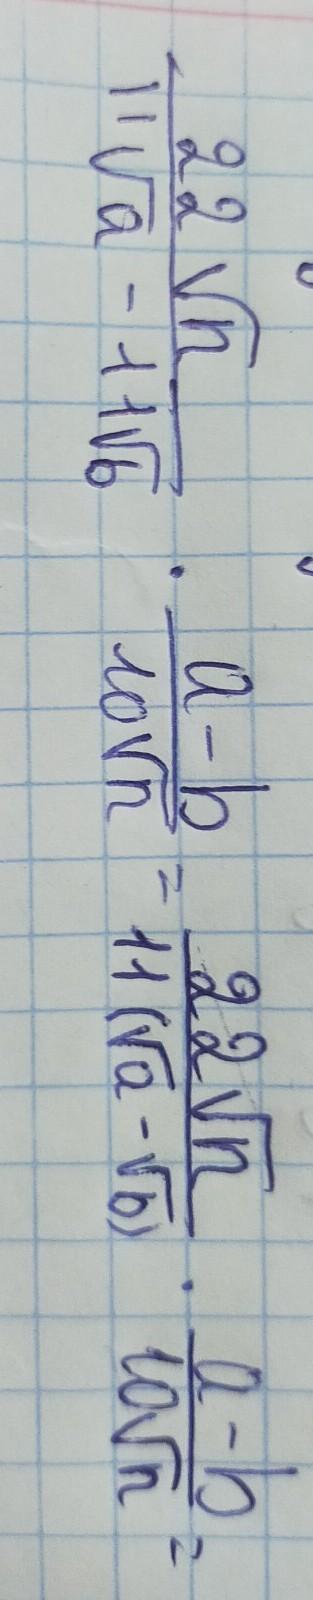 22√n / (11√a - 11√b) · (a-b) / (10√n) = 22√n / (11(√a - √b)) · (a-b) / (10√n) =